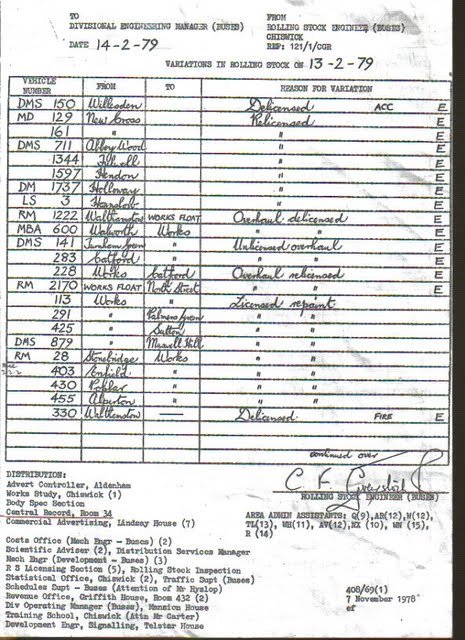 TO
FROM
DIVISIONAL ENGINEERING MANAGER (BUSES)
ROLLING STOCK ENGINEER (BUSES)
CHISWICK
DATE 14-2-79
REF: 121/1/CGR
VARIATIONS IN ROLLING STOCK ON 13-2-79
VEHICLE NUMBER FROM TO REASON FOR VARIATION
DMS 150 Willesden Delicensed ACC E
MD 129 New Cross Relicensed E
161 " " E
DMS 711 Abbey Wood " E
1344 " E
1597 Hendon " E
DM 1737 Holloway " E
LS 3 Hanslope " E
RM 1222 Walthamstow WORKS FLOAT Overhaul delicensed E
MBA 600 Walworth Works " " E
DMS 141 Turnham Green " Unlicensed overhaul E
283 Catford " " " E
228 Works Catford Overhaul relicensed E
RM 2170 WORKS FLOAT North Street " " E
113 Works " Licensed repaint
291 " Palmers Green " "
425 " Sutton " "
DMS 879 " Muswell Hill " "
RM 28 Stonebridge Works " "
403 Enfield " " "
430 Poplar " " "
455 Alperton " " "
330 Walthamstow — Delicensed FIRE E
continued over
DISTRIBUTION:
Advert Controller, Aldenham
Works Study, Chiswick (1)
Body Spec Section
Central Record, Room 34
Commercial Advertising, Lindsey House (7)
ROLLING STOCK ENGINEER (BUSES)
AREA ADMIN ASSISTANTS: Q(9),AB(12),W(12),
TL(13), WH(11), AV(12),NX (10), WN (15),
R (14)
Costs Office (Mech Engr - Buses) (2)
Scientific Adviser (2), Distribution Services Manager
Mech Engr (Development - Buses) (3)
R S Licensing Section (5), Rolling Stock Inspection
Statistical Office, Chiswick (2), Traffic Supt (Buses)
Schedules Supt - Buses (Attention of Mr Hyslop)
Revenue Office, Griffith House, Room 432 (2)
Div Operating Manager (Buses), Mansion House
Training School, Chiswick (Attn Mr Carter)
Development Engr, Signalling, Telstar House
408/69(1)
7 November 1978
cf